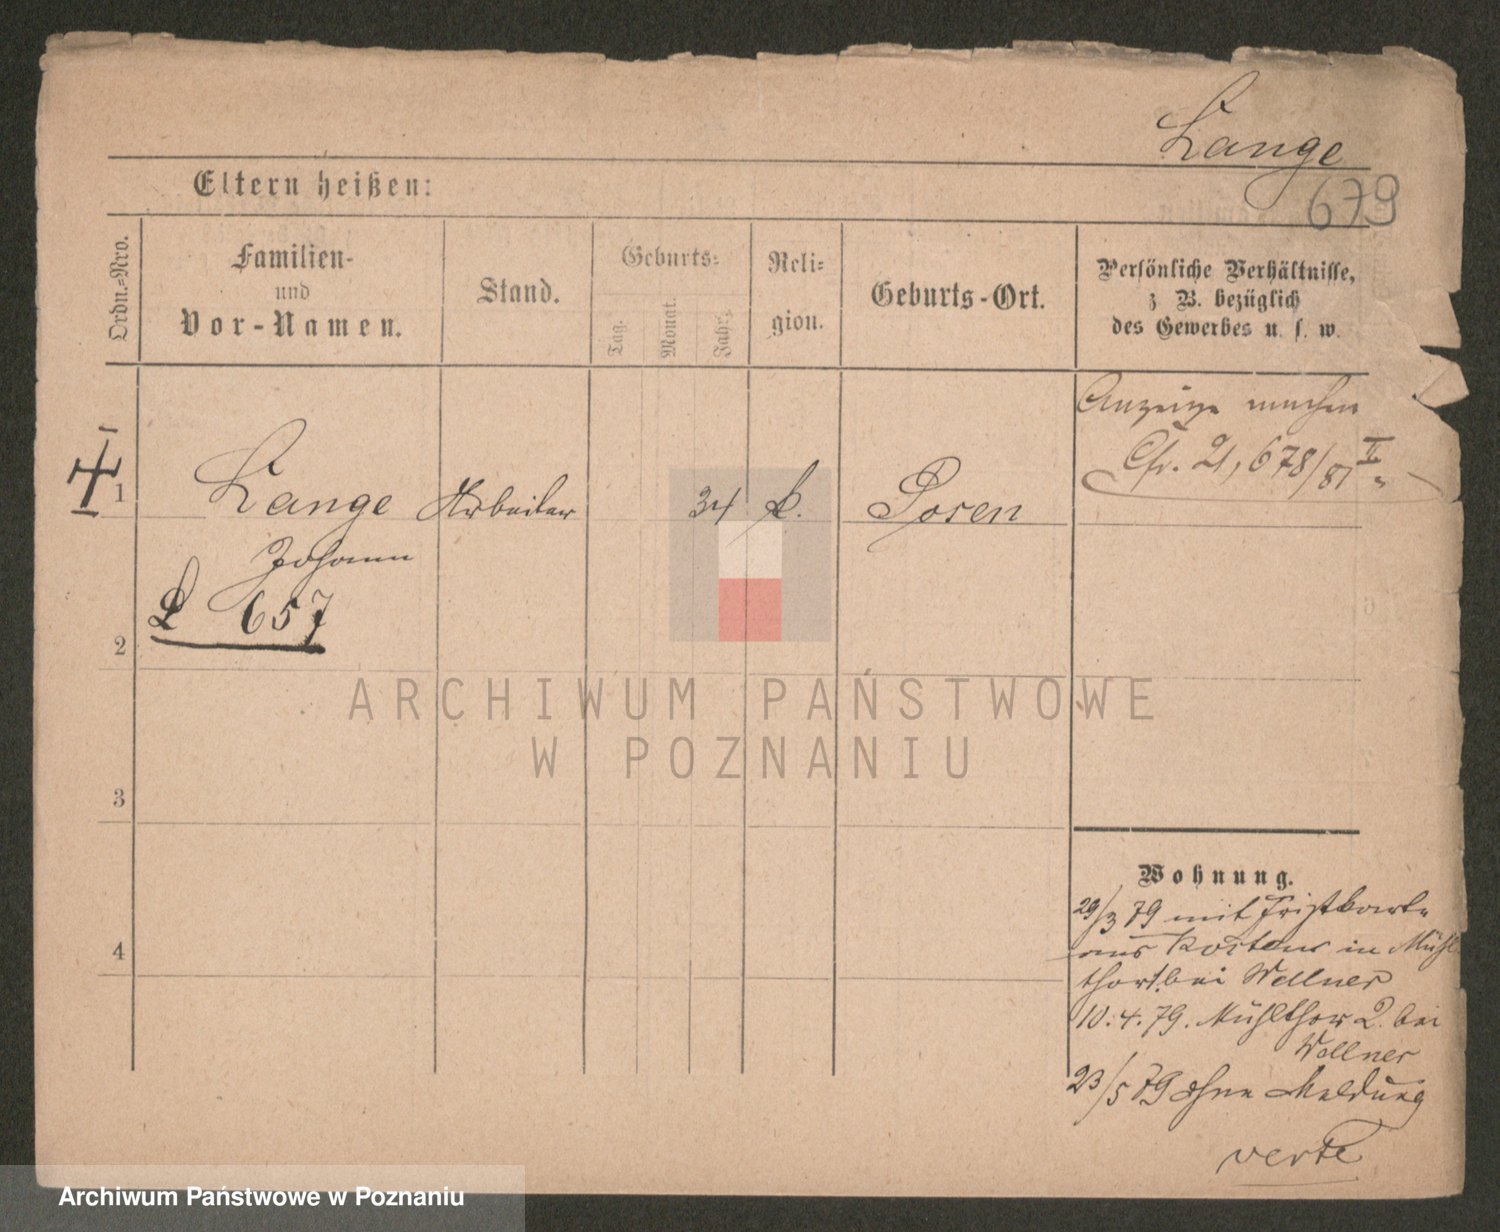 Lange
679
Eltern heißen:
Ordn.-Nro.
Familien-
und
Vor-Namen.
Stand.
Geburts-
Tag.
Monat.
Jahr.
Reli-
gion.
Geburts-Ort.
Persönliche Verhältnisse,
z. B. bezüglich
des Gewerbes u. s. w.
Anzeige machen
Cfr. 21, 678/81 II
1
Lange Arbeiter 34 k. Posen
Johann
L 657
2
3
4
ARCHIWUM PAŃSTWOWE
W POZNANIU
Wohnung.
29/3 79 mit Fristkarte
aus Kosten in Mühl
thor bei Wellner
10.4.79. Mühlthor 2. bei
Wellner
23/5 79 ohne Meldung
verte
Archiwum Państwowe w Poznaniu